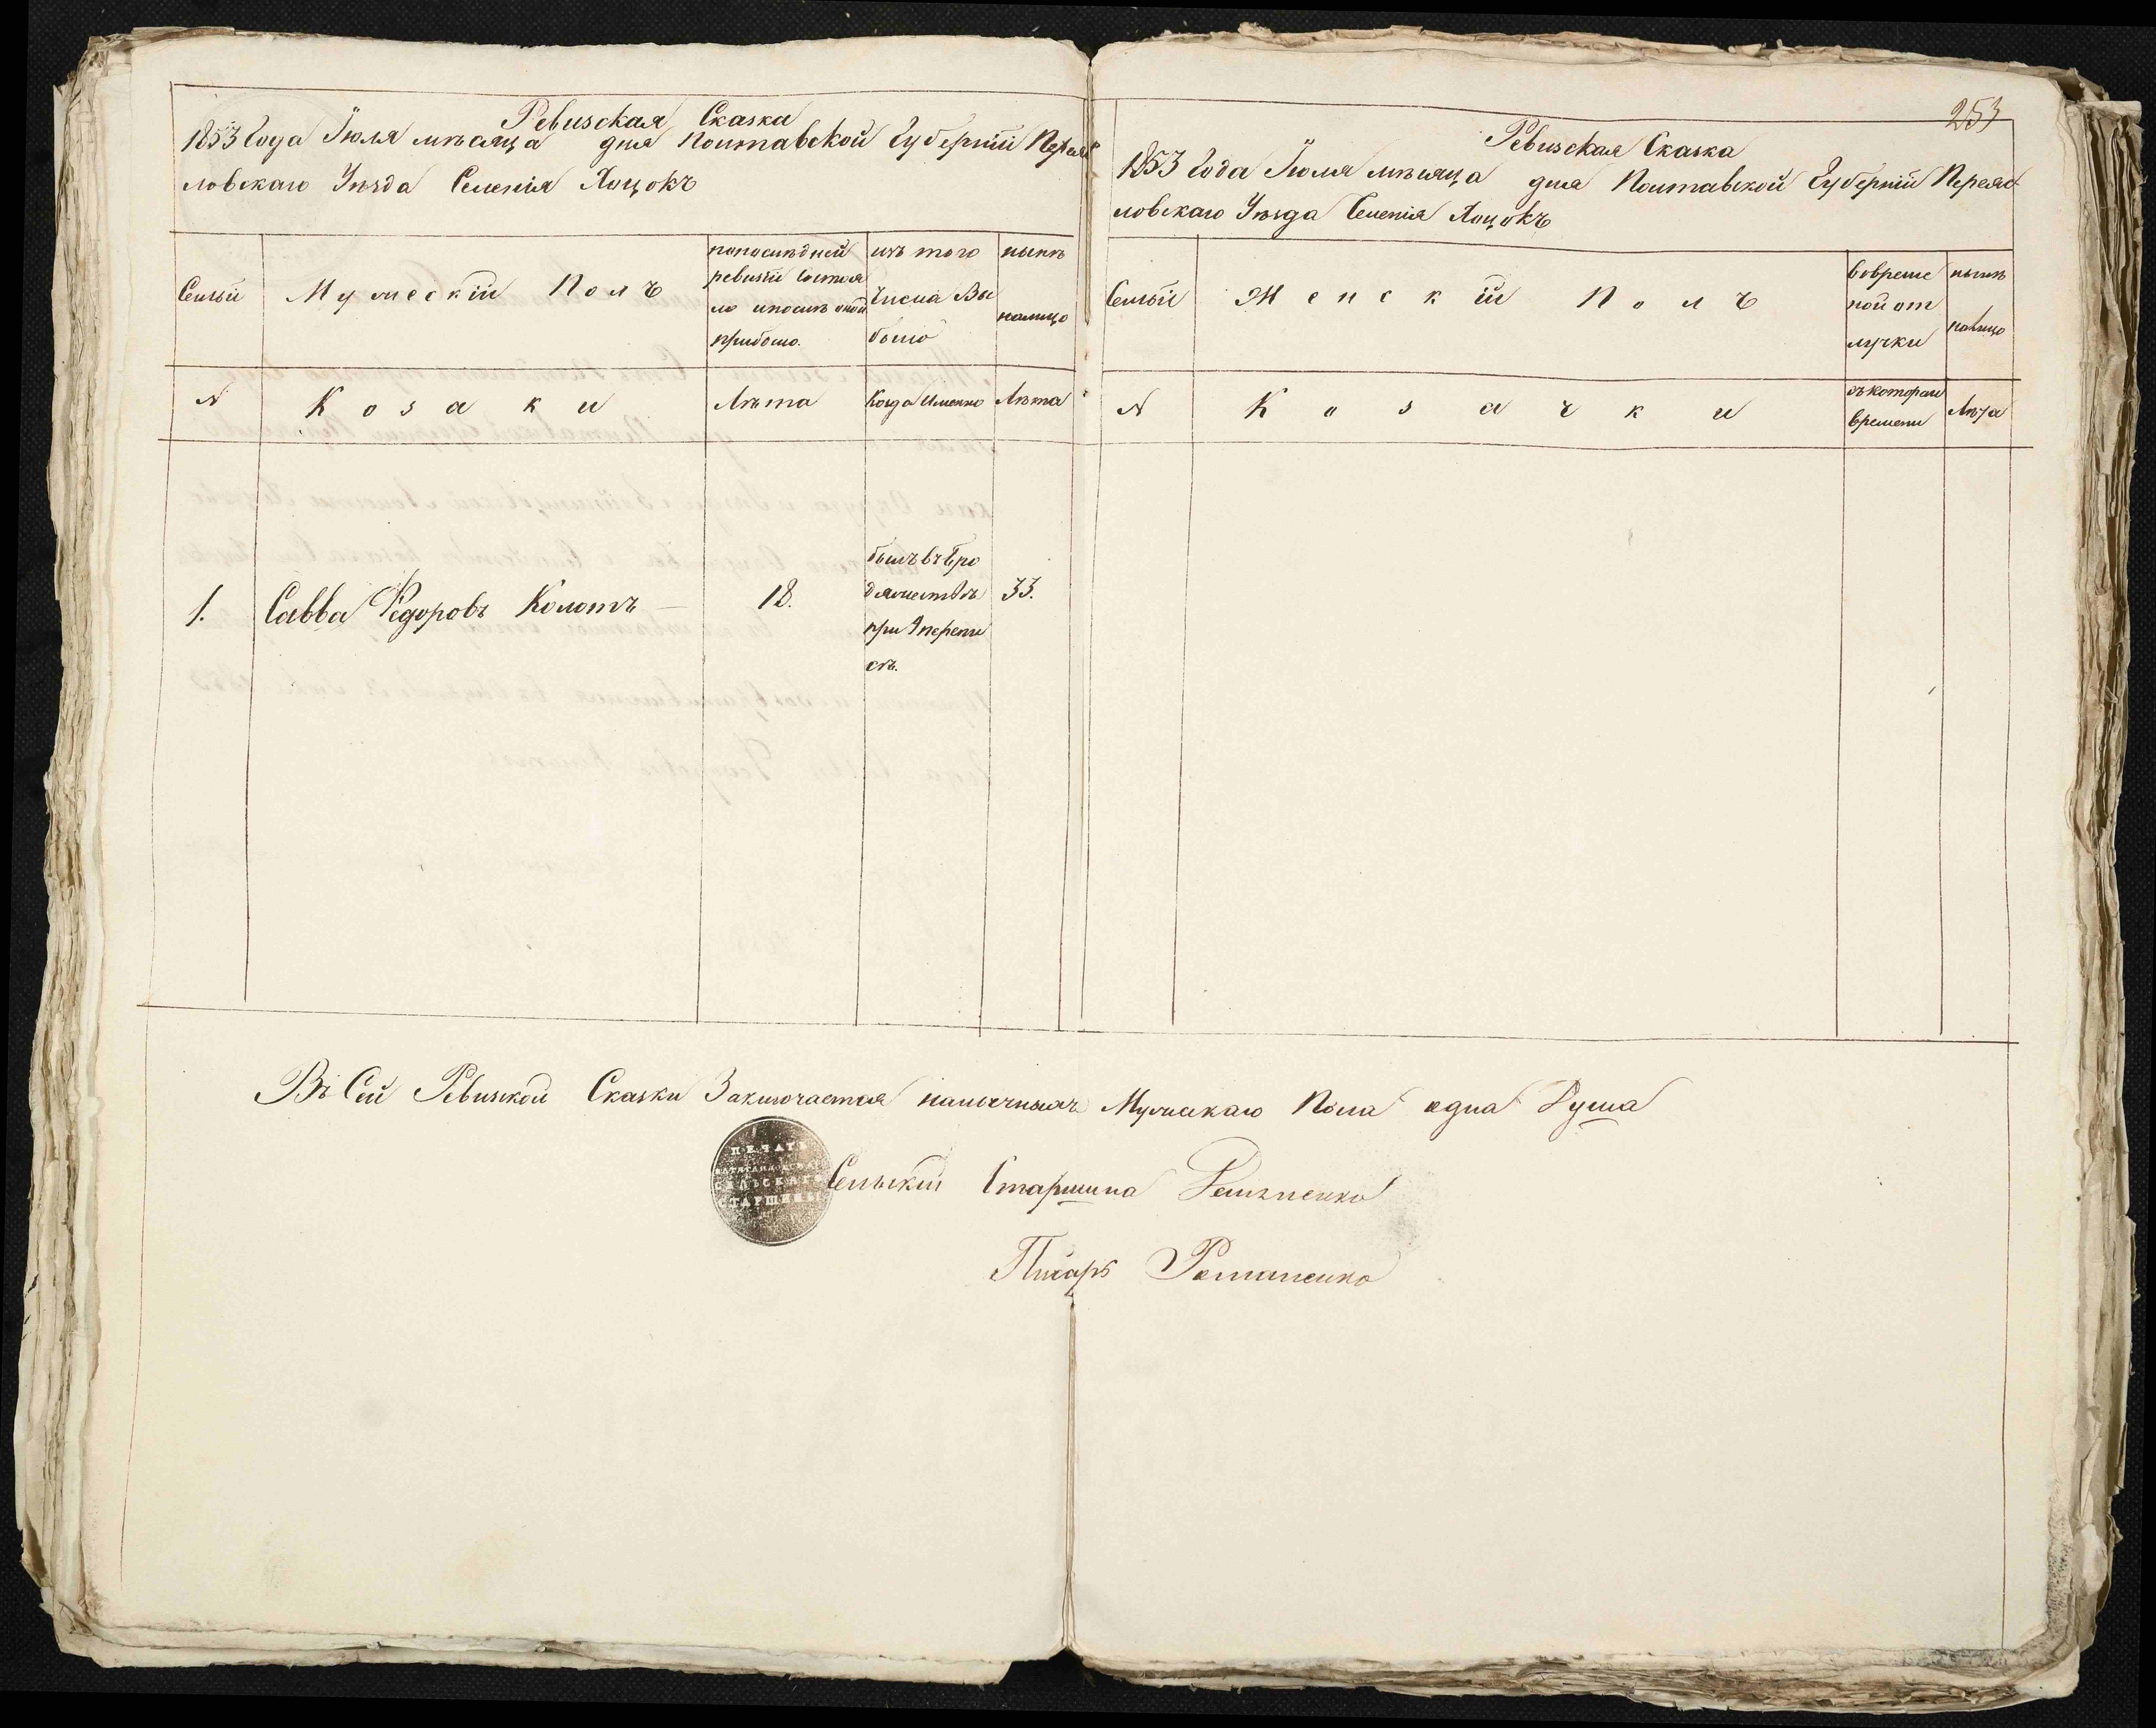 Ревизская Сказка
1853 Года Іюля мѣсяца дня Полтавской Губерніи Переяс
ловскаго Уѣзда Селенія Хоцокъ
Семьи
Мужескій Полъ
попослѣдней
ревизіи состоя
ло ипослѣ оной
прибыло.
изъ того
Числа Вы
было
нынѣ
налицо
№
Козаки
Лѣта
Когда Именно
Лѣта
1.
Савва Федоровъ Колотъ
18.
былъ въ бро
дяжествѣ
при 9 перепи
сѣ.
33.
253
Ревизская Сказка
1853 Года Іюля мѣсяца дня Полтавской Губерніи Переяс
ловскаго Уѣзда Селенія Хоцокъ
Семьи
Женскій Полъ
вовреме
ной от
лучки
нынѣ
налицо
№
Козачки
съкотораго
времени
Лѣта
Въ Сей Ревизской Сказки Заключается наличныхъ Мужскаго Пола одна Душа
ПЕЧАТЬ
СЕЛЬСКАГО
СТАРШИНЫ
Сельскій Старшина
Писарь Романенко